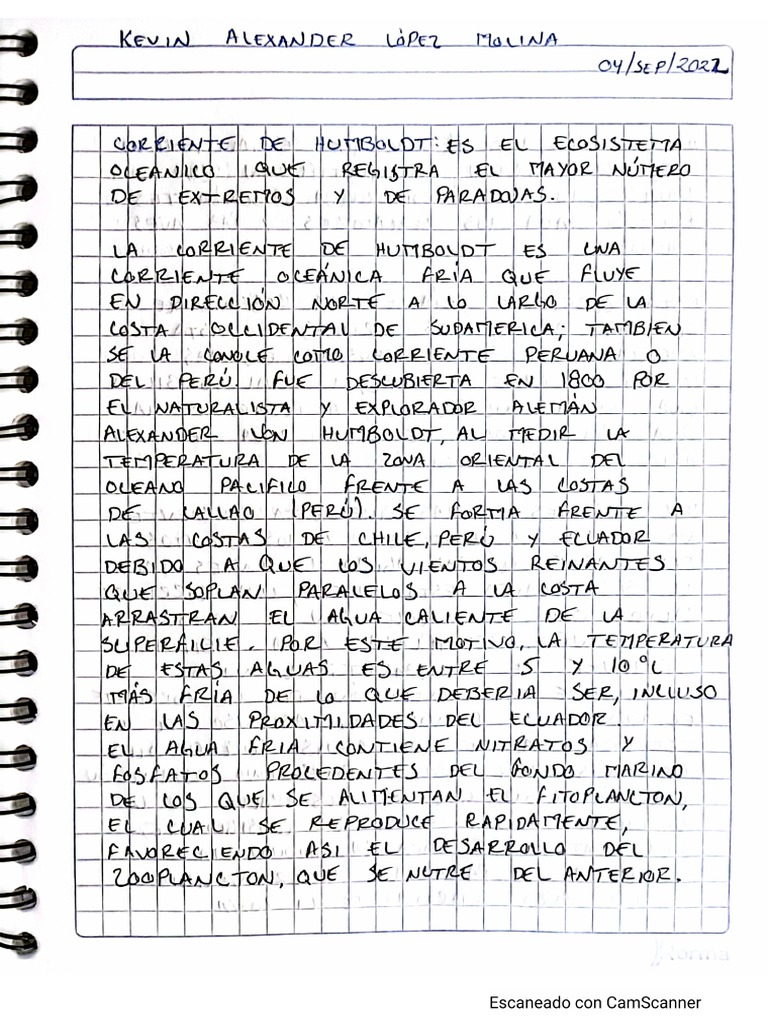 KEVIN ALEXANDER LÓPEZ MOLINA
04/SEP/2022
CORRIENTE DE HUMBOLDT: ES EL ECOSISTEMA
OCEANICO QUE REGISTRA EL MAYOR NÚMERO
DE EXTREMOS Y DE PARADOJAS.
LA CORRIENTE DE HUMBOLDT ES UNA
CORRIENTE OCEÁNICA FRÍA QUE FLUYE
EN DIRECCIÓN NORTE A LO LARGO DE LA
COSTA OCCIDENTAL DE SUDAMERICA; TAMBIEN
SE LA CONOCE COMO CORRIENTE PERUANA O
DEL PERÚ. FUE DESCUBIERTA EN 1800 POR
EL NATURALISTA Y EXPLORADOR ALEMÁN
ALEXANDER VON HUMBOLDT, AL MEDIR LA
TEMPERATURA DE LA ZONA ORIENTAL DEL
OCEANO PACIFICO FRENTE A LAS COSTAS
DE CALLAO (PERÚ). SE FORMA FRENTE A
LAS COSTAS DE CHILE, PERÚ Y ECUADOR
DEBIDO A QUE LOS VIENTOS REINANTES
QUE SOPLAN PARALELOS A LA COSTA
ARRASTRAN EL AGUA CALIENTE DE LA
SUPERFICIE. POR ESTE MOTIVO, LA TEMPERATURA
DE ESTAS AGUAS ES ENTRE 5 Y 10°C
MÁS FRÍA DE LO QUE DEBERIA SER, INCLUSO
EN LAS PROXIMIDADES DEL ECUADOR.
EL AGUA FRIA CONTIENE NITRATOS Y
FOSFATOS PROCEDENTES DEL FONDO MARINO
DE LOS QUE SE ALIMENTAN EL FITOPLANCTON,
EL CUAL SE REPRODUCE RAPIDAMENTE,
FAVORECIENDO ASI EL DESARROLLO DEL
ZOOPLANCTON, QUE SE NUTRE DEL ANTERIOR.
Norma
Escaneado con CamScanner